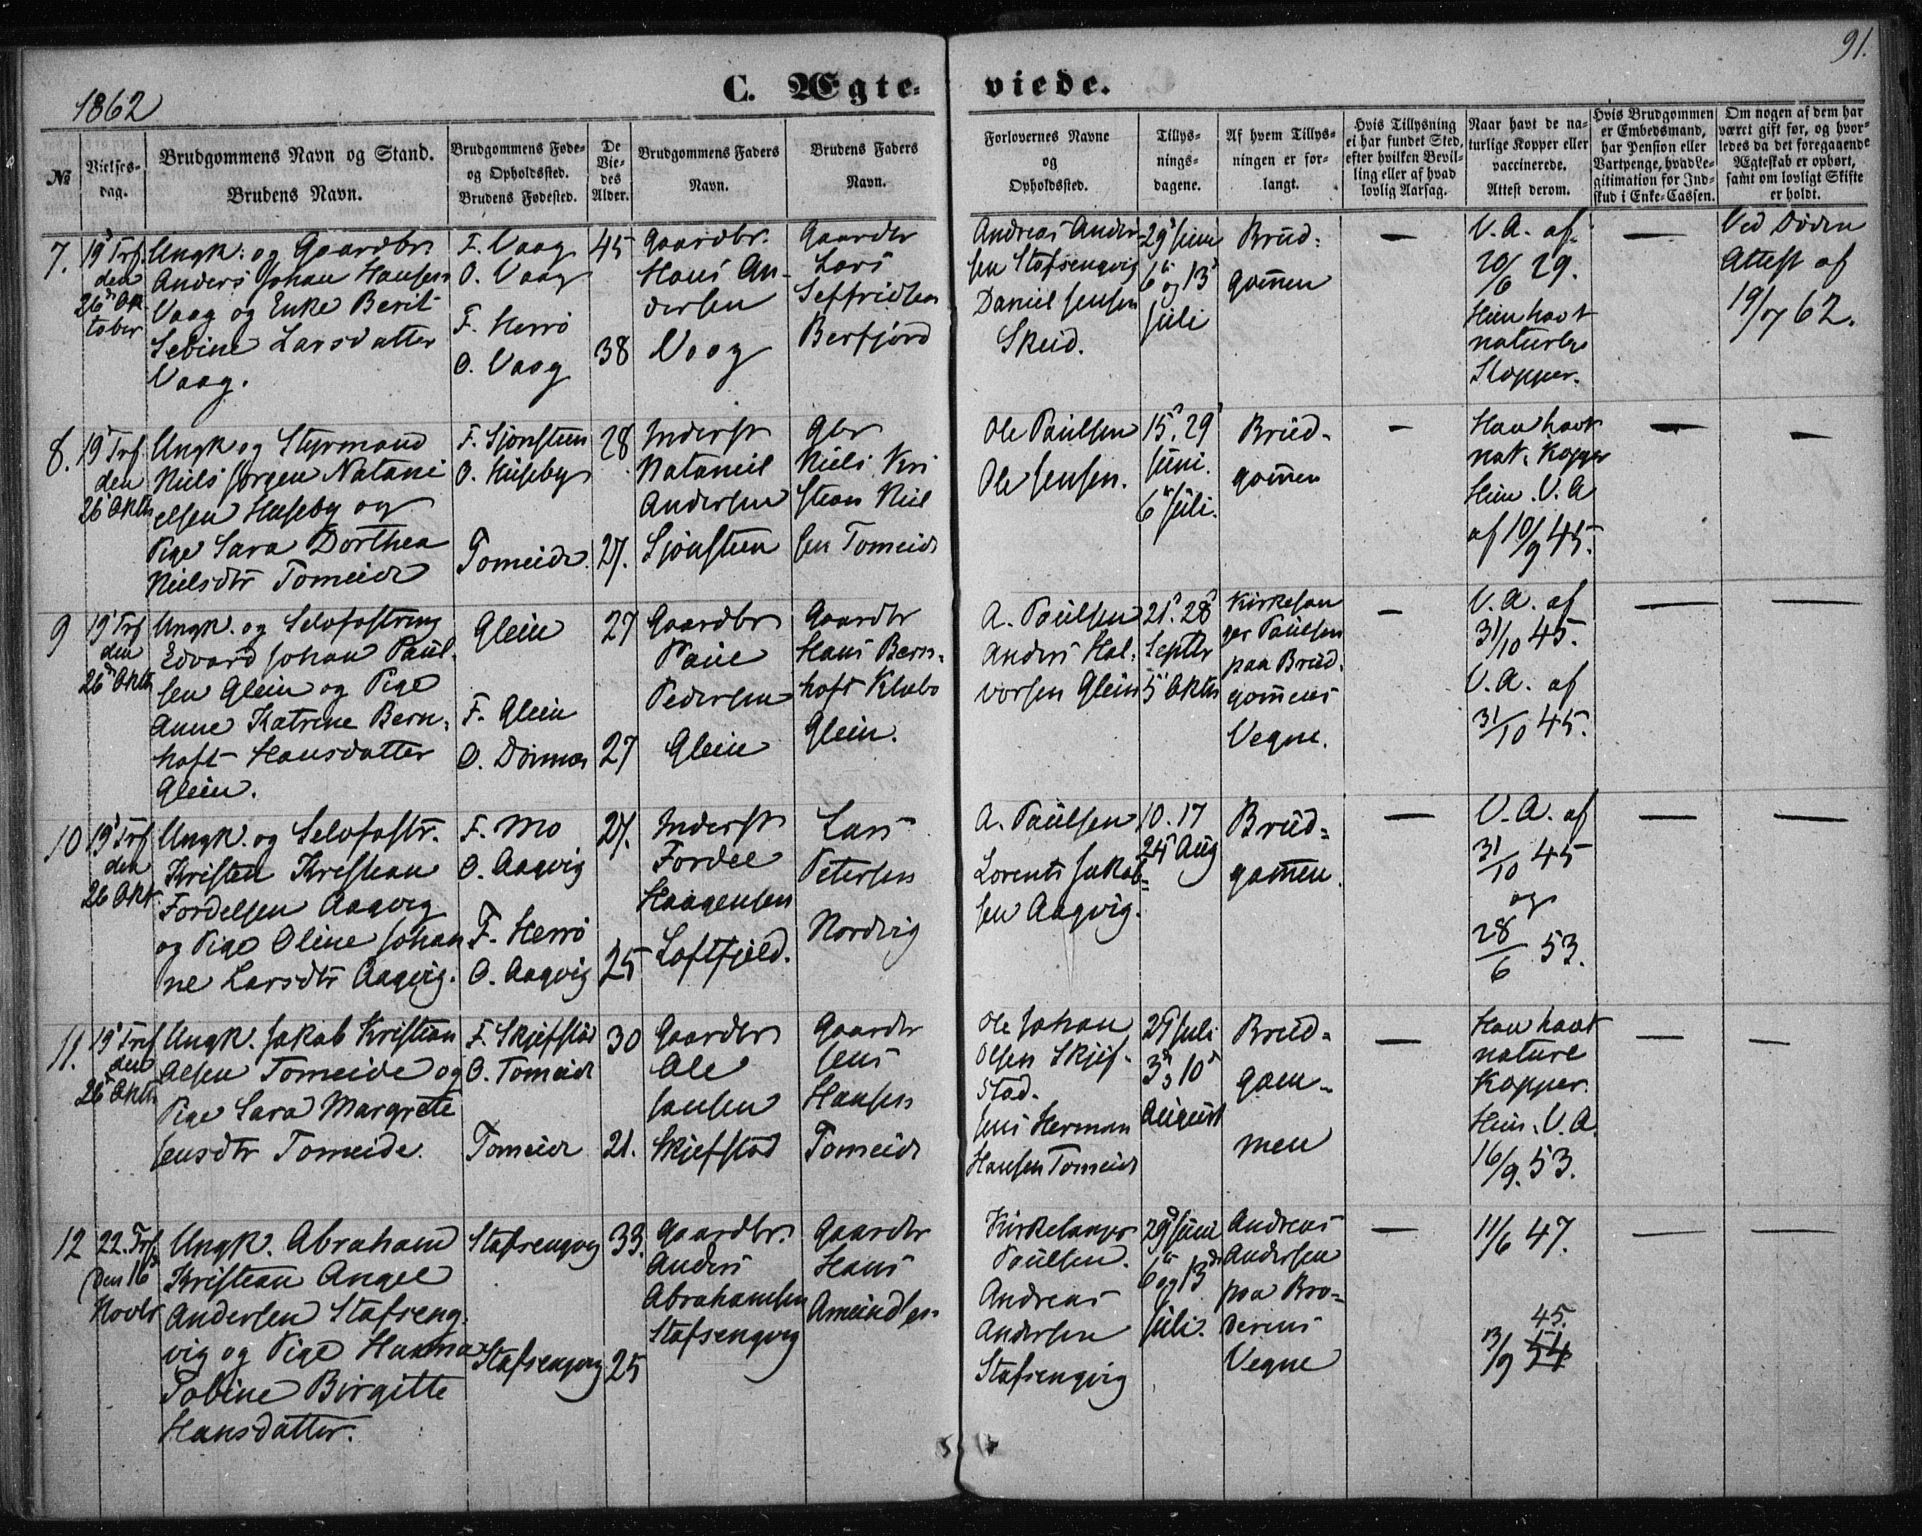 1862
C. Ægte-
viede.
91.
No
Vielses-
dag.
Brudgommens Navn og Stand.
Brudens Navn.
Brudgommens Føde-
og Opholdssted.
Brudens Fødested.
De
Vie-
des
Alder.
Brudgommens Faders
Navn.
Brudens Faders
Navn.
Forlovernes Navne
og
Opholdssted.
Tillys-
nings-
dagene.
Af hvem Tillys-
ningen er for-
langt.
Hvis Tillysning
ei har fundet Sted,
efter hvilken Bevil-
ling eller af hvad
lovlig Aarsag.
Naar havt de na-
turlige Kopper eller
vaccinerede.
Attest derom.
Hvis Brudgommen
er Embedsmand,
har Pension eller
Vartpenge, hvad Le-
gitimation for Ind-
skud i Enke-Cassen.
Om nogen af dem har
været gift før, og hvor-
ledes da det foregaaende
Ægteskab er ophørt,
samt om lovligt Skifte
er holdt.
7.
19d Trf.
den
26d Ok
tober
Ungk. og Gaardbr.
Anders Johan Hansen
Vaag og Enke Berit
Sebine Larsdatter
Vaag.
F. Vaag
O. Vaag
F. Herrø
O. Vaag
45
38
Gaardbr.
Hans An-
dersen
Vaag
Gaardbr
Lars
Seffridsen
Berfjord
Andreas Ander
sen Stafsengvig
Daniel Jensen
Skeid.
29d Juni
6te og 13d
Juli
Brud-
gommen
V. A. af
20/6 29.
Hun havt
naturlige
Kopper.
Ved Døden
Attest af
19/7 62.
8.
19d Trf.
den
26d Oktb
Ungk og Styrmand
Niels Jørgen Natani
elsen Huseby og
Pige Sara Dorthea
Nielsdtr Tomeide
F. Sjonsteen
O. Huseby
Tomeide.
28
27.
Inderst
Nataniel
Andersen
Sjønsteen
Gbr
Niels Kri
stian Niel
sen Tomeide
Ole Paulsen
Ole Jensen.
15d 29d
Juni.
6te Juli.
Brud-
gommen
Han havt
nat. Kopper
Hun V. A
af 10/9 45.
9
19d Trf
den
26d Oktb
Ungk. og Selvfostring
Edvard Johan Paul-
sen Glein og Pige
Anne Katrine Bern-
hoft Hansdatter
Glein.
Glein
F. Glein
O. Dønnes
27
27
Gaardbr
Paul
Pedersen
Glein
Gaardbr
Hans Bern-
hoft Klæbo
Glein.
A. Paulsen
Anders Hal-
vorsen Glein
21d 28d
Septbr
5te Oktbr
Kirkesan
ger Paulsen
paa Brud-
gommens
Vegne.
V. A. af
31/10 45.
V. A. af
31/10 45.
10
19d Trf
den
26 Okt.
Ungk. og Selvfostr.
Kristen Kristian
Fordelsen Aagvig
og Pige Oline Johan
ne Larsdtr Aagvig.
F. Mo
O. Aagvig
F. Herrø
O. Aagvig
27.
25
Inderst
Fordel
Haagensen
Loftfjeld.
Lars
Petersen
Nordvig
A. Paulsen
Lorents Jakob-
sen Aagvig.
10. 17
24d Aug
Brud-
gommen.
V. A. af
31/10 45
og
28/6 53.
11.
19d Trf
den
26d Oktb
Ungk. Jakob Kristian
Olsen Tomeide og
Pige Sara Margrete
Jensdtr Tomeide.
F. Skjefstad
O. Tomeide
Tomeide
30
21.
Gaardbr
Ole
Jansen
Skjefstad
Gaardbr
Jens
Hansen
Tomeide
Ole Johan
Olsen Skjef-
stad.
Jens Herman
Hansen Tomeide
27d Juli
3d, 10d
August
Brud-
gom-
men
Han havt
naturl
Kopper.
Hun V. A.
16/9. 53.
12
22. Trf.
den 16d
Novbr
Ungk. Abraham
Kristian Angel
Andersen Stafseng-
vig og Pige Hanna
Tobine Birgitte
Hansdatter.
Stafsengvig
Stafsengvig
33.
25
Gaardbr.
Anders
Abrahamsen
Stafsengvig
Gaardbr
Hans
Amundsen
Kirkesanger
Paulsen.
Andreas
Andersen
Stafsengvig
29d Juni
6te og 13de
Juli.
Andreas
Andersen
paa Bro-
derens
Vegne
11/6 47.
45.
13/9 54